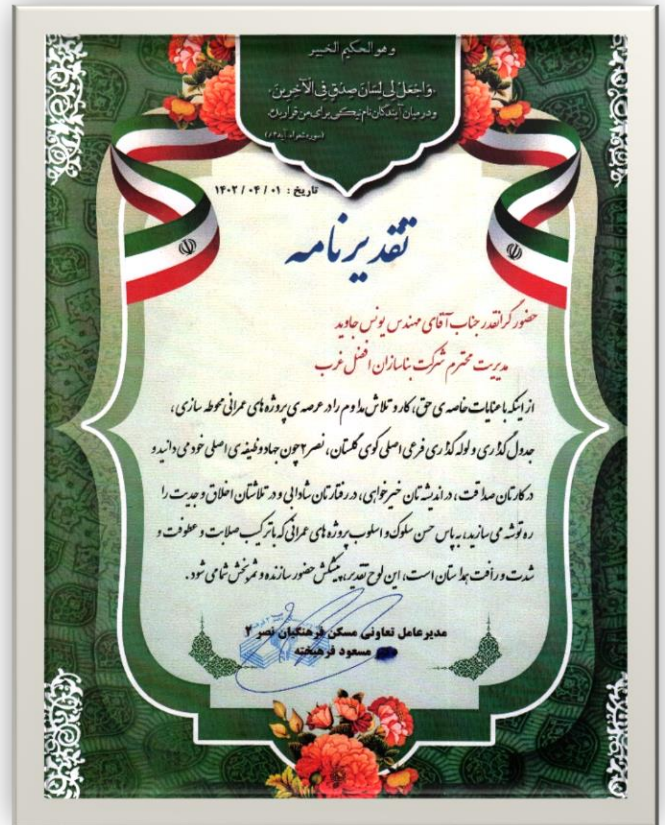 وهوالحکیم الخبیر
«وَاجْعَلْ لِي لِسَانَ صِدْقٍ فِي الْآخِرِينَ»
و در میان آیندگان نام نیکی برای من قرار بده.
(سوره شعراء، آیه ۸۴)
تاریخ : ۰۱ / ۰۴ / ۱۴۰۲
تقدیرنامه
حضور گرانقدر جناب آقای مهندس یونس جاوید
مدیریت محترم شرکت بناسازان افضل غرب
از اینکه با عنایات خاصه ی حق، کار و تلاش مداوم را در عرصه ی پروژه های عمرانی محوطه سازی،
جدول گذاری و لوله گذاری فرعی اصلی کوی گلستان، نصر ۲ چون جهاد وظیفه ی اصلی خود می دانید و
در کارتان صداقت، در اندیشه تان خیرخواهی، در رفتارتان شادابی و در تلاشتان اخلاق و جدیت را
ره توشه می سازید، به پاس حسن سلوک و اسلوب پروژه های عمرانی که با ترکیب صلابت و عطوفت و
شدت و رأفت همداستان است، این لوح تقدیر، پیشکش حضور سازنده و ثمربخش شما می شود.
مدیرعامل تعاونی مسکن فرهنگیان نصر ۲
مسعود فرهیخته